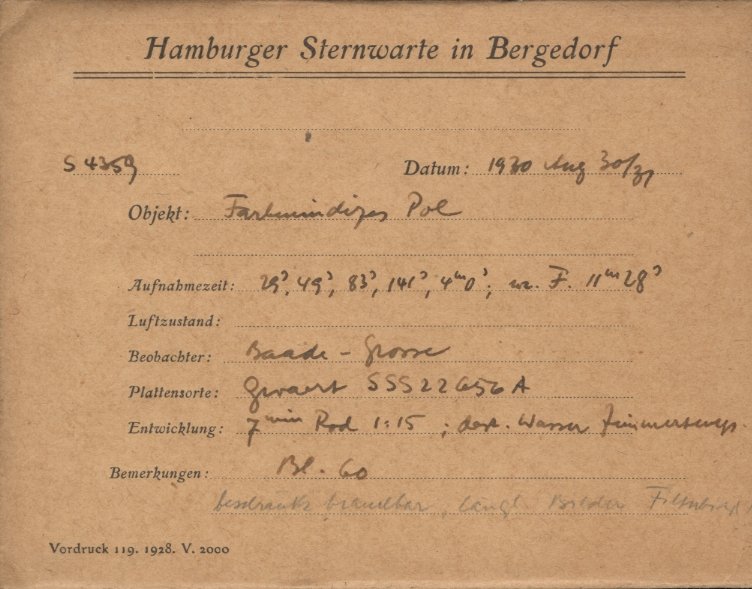 Hamburger Sternwarte in Bergedorf
S 4359 Datum: 1930 Aug 30/31
Objekt: Farbenindizes Pol
Aufnahmezeit: 29ˢ, 49ˢ, 83ˢ, 141ˢ, 4ᵐ0ˢ; F. 11ᵐ28ˢ
Luftzustand:
Beobachter: Baade - Grosse
Plattensorte: Gevaert SSS 22656 A
Entwicklung: 7 min Rod 1:15; dest. Wasser
Bemerkungen: Bl. 60
beschränkt brauchbar, Bilder
Vordruck 119. 1928. V. 2000